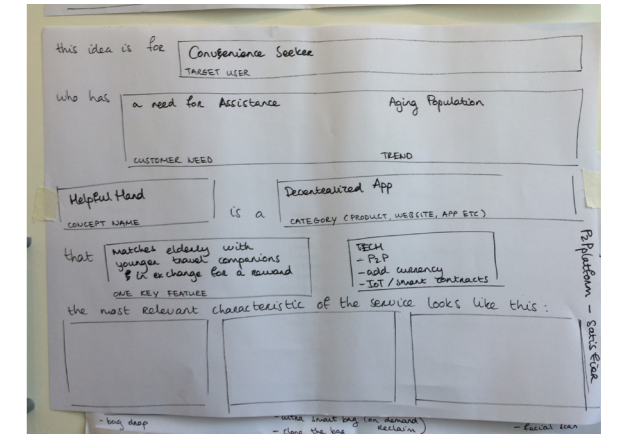 this idea is for
Convenience Seeker
TARGET USER
who has
a need for Assistance
Aging Population
CUSTOMER NEED
TREND
Helpful Hand
CONCEPT NAME
is a
Decentralized App
CATEGORY (PRODUCT, WEBSITE, APP ETC)
that
matches elderly with
younger travel companions
in exchange for a reward
ONE KEY FEATURE
TECH
- P2P
- add currency
- IoT / smart contracts
P2P platform - Satisfier
the most relevant characteristic of the service looks like this:
- bag drop
smart bag (on demand)
- clone the bag
Reclaim
- facial scan